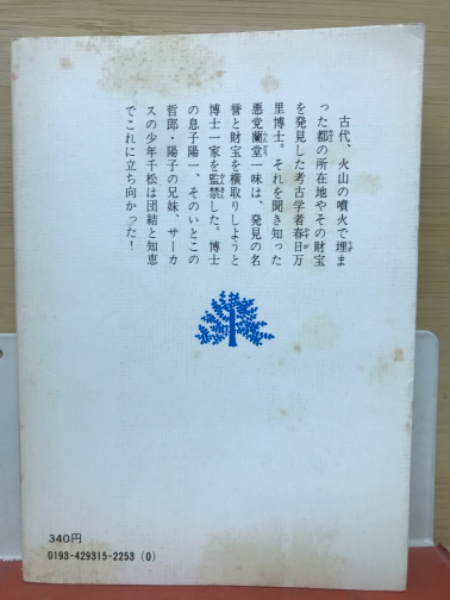 古代、火山の噴火で埋ま
った都の所在地やその財宝
を発見した考古学者春日万
里博士。それを聞き知った
悪党蘭堂一味は、発見の名
誉と財宝を横取りしようと
博士一家を監禁した。博士
の息子陽一、そのいとこの
哲郎・陽子の兄妹、サーカ
スの少年千松は団結と知恵
でこれに立ち向かった！
340円
0193-429315-2253 (0)